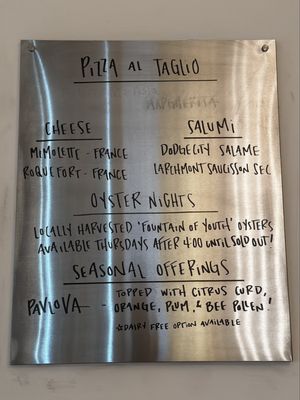 PIZZA AL TAGLIO
MARGHERITA
CHEESE
MIMOLETTE - FRANCE
ROQUEFORT - FRANCE
SALUMI
DODGE CITY SALAME
LARCHMONT SAUCISSON SEC
OYSTER NIGHTS
LOCALLY HARVESTED 'FOUNTAIN OF YOUTH' OYSTERS
AVAILABLE THURSDAYS AFTER 4:00 UNTIL SOLD OUT!
SEASONAL OFFERINGS
PAVLOVA - TOPPED WITH CITRUS CURD,
ORANGE, PLUM, & BEE POLLEN!
*DAIRY FREE OPTION AVAILABLE